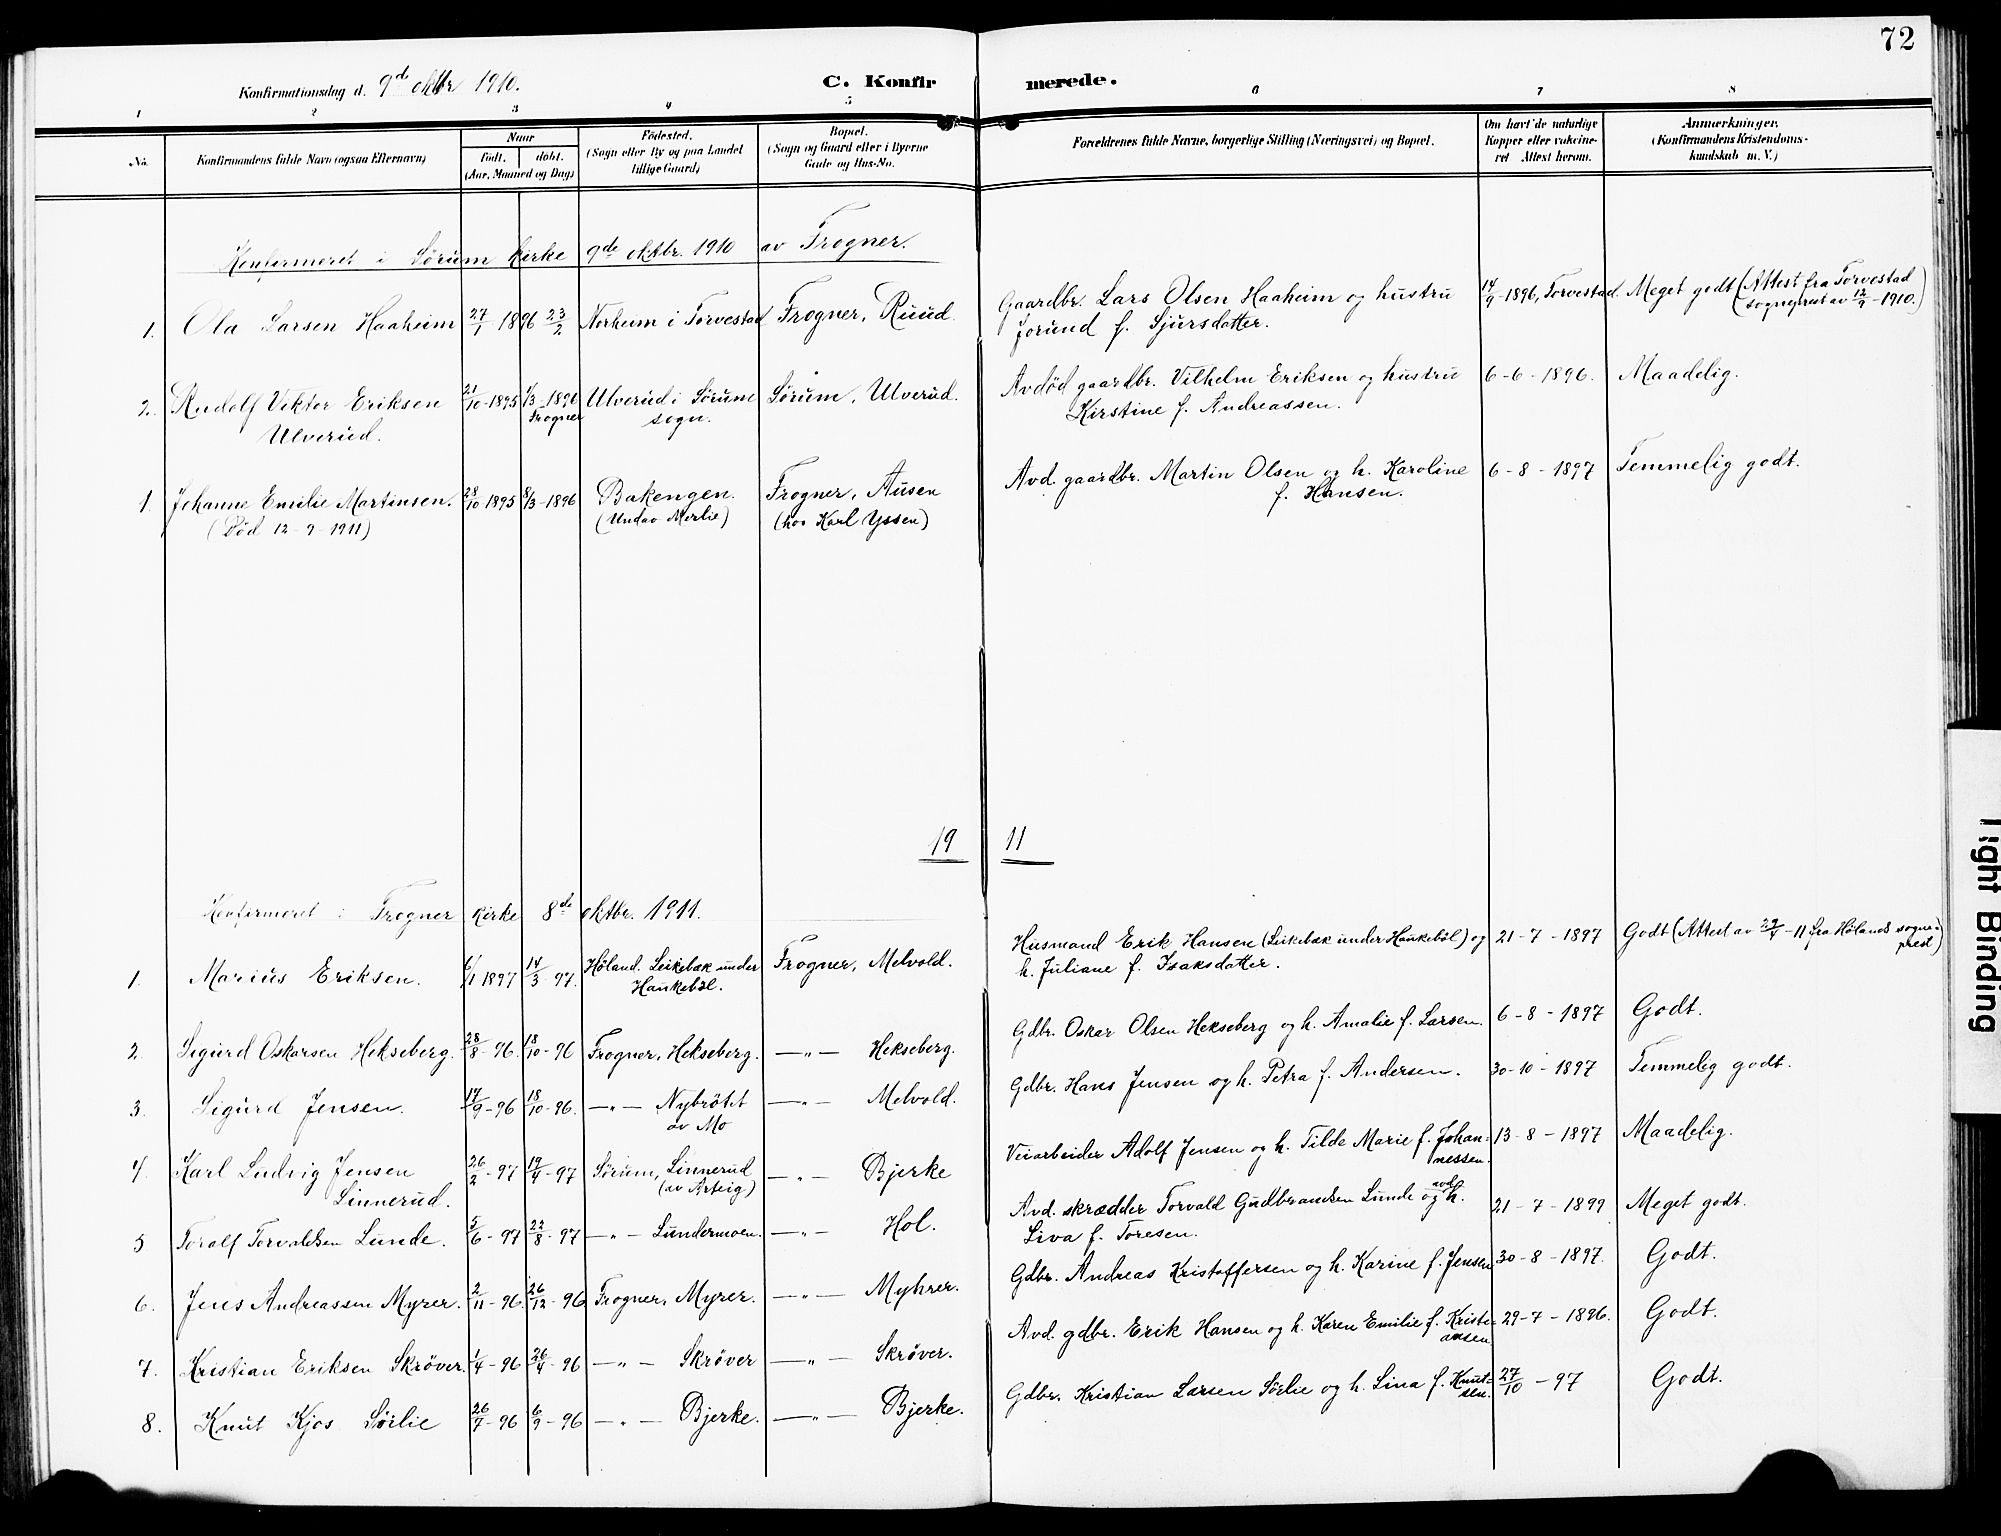 72
Konfirmationsdag d. 9de oktbr 1910. C. Konfir merede.
1 2 3 4 5 6 7 8
No. Konfirmandens fulde Navn (ogsaa Efternavn) Naar født. døbt. (Aar, Maaned og Dag) Fødested. (Sogn eller By og paa Landet tillige Gaard) Bopæl. (Sogn og Gaard eller i Byerne Gade og Hus-No. Forældrenes fulde Navne, borgerlige Stilling (Næringsvei) og Bopæl. Om havt de naturlige Kopper eller vaccineret Attest herom. Anmærkninger. (Konfirmandens Kristendomskundskab m. V.)
Konfirmeret i Sørum kirke 9de oktbr. 1910 av Frogner.
1. Ola Larsen Haaheim 27/1 1896 23/2 Norheim i Torvestad Frogner, Ruud. Gaardbr. Lars Olsen Haaheim og hustru 14/9-1896, Torvestad. Meget godt (Attest fra Torvestad
Jorund f. Sjursdatter. sogneprest av 12/9-1910.)
2. Rudolf Viktor Eriksen 21/10-1895 1/3-1896 Ulverud i Sørum Sørum, Ulverud. Avdød gaardbr. Vilhelm Eriksen og hustru 6-6-1896. Maadelig.
Ulverud. Frogner sogn. Kirstine f. Andreassen.
1. Johanne Emilie Martinsen. 28/10 1895 8/3-1896 Bakengen. Frogner, Ausen Avd. gaardbr. Martin Olsen og h. Karoline 6-8-1897 Temmelig godt.
(Død 12-9-1911) (Undav Merlie) (hos Karl Yssen) f. Hansen.
19 11
Konfirmeret i Frogner kirke 8de oktbr. 1911.
1. Marius Eriksen. 6/1 1897 14/3 97. Høland. Leikebæk under Frogner, Melvold. Husmand Erik Hansen (Leikebæk under Haukebøl) og 21-7-1897 Godt (Attest av 29/4-11 fra Hølands sogne-
Haukebøl. h. Juliane f. Isaksdatter. prest)
2. Sigurd Oskarsen Hekseberg. 28/8-96. 18/10-96 Frogner, Hekseberg. —"— Hekseberg. Gdbr. Oskar Olsen Hekseberg og h. Amalie f. Larsen. 6-8-1897 Godt.
3. Sigurd Jensen. 17/9-96 18/10-96. —"— Nybrôtet —"— Melvold. Gdbr. Hans Jensen og h. Petra f. Andersen. 30-10-1897 Temmelig godt.
av Mo
4. Karl Ludvig Jensen 26/2-97 19/4-97 Sørum, Linnerud —"— Bjerke Veiarbeider Adolf Jensen og h. Tilde Marie f. Johan- 13-8-1897 Maadelig.
Linnerud. (av Arteig) nessen.
5 Toralf Torvaldsen Lunde. 5/6-97 22/8-97 —"— Lundermoen. —"— Hol. Avd. skrædder Torvald Gudbrandsen Lunde og avd. h. 21-7-1899 Meget godt.
Liva f. Toresen.
6. Jens Andreassen Myrer. 2/11-96. 26/12-96 Frogner, Myrer. —"— Myhrer. Gdbr. Andreas Kristoffersen og h. Karine f. Jensen 30-8-1897. Godt.
7. Kristian Eriksen Skrøver. 1/4-96 26/4-96 —"— Skrøver —"— Skrøver. Avd. gdbr. Erik Hansen og h. Karen Emilie f. Kristi- 29-7-1896. Godt.
ansen
8. Knut Kjos Sørlie 26/7-96 6/9-96 —"— Bjerke. —"— Bjerke. Gdbr. Kristian Larsen Sørlie og h. Lina f. Knut- 27/10-97 Godt.
sen.
Tight Binding